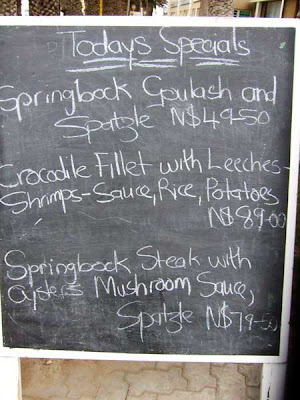 Todays Specials
Springbock Goulash and
Spatzle N$49-50
Crocodile Fillet with Leeches-
Shrimps-Sauce, Rice, Potatoes
N$89-00
Springbock Steak with
Oysters Mushroom Sauce,
Spatzle N$79-50